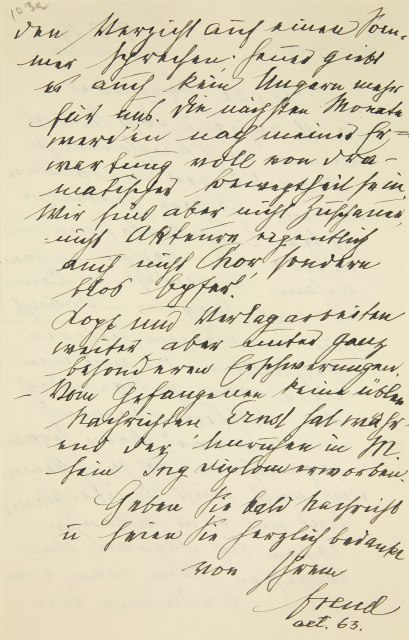 103a
den Verzicht auf einen Som-
mer sprechen. Heuer giebt
es auch kein Ungarn mehr
für uns. Die nächsten Monate
werden nach meiner Er-
wartung voll von dra-
matischer Bewegtheit sein.
Wir sind aber nicht Zuschauer,
nicht Akteure, eigentlich
auch nicht Chor, sondern
blos Opfer!
Kopf und Verlag arbeiten
weiter aber unter ganz
besonderen Erschwerungen.
– Vom Gefangenen keine üblen
Nachrichten. Ernst hat währ-
end der Unruhen in M.
sein Ing Diplom erworben.
Geben Sie bald Nachricht
u seien Sie herzlich bedankt
von Ihrem
Freud
aet. 63.